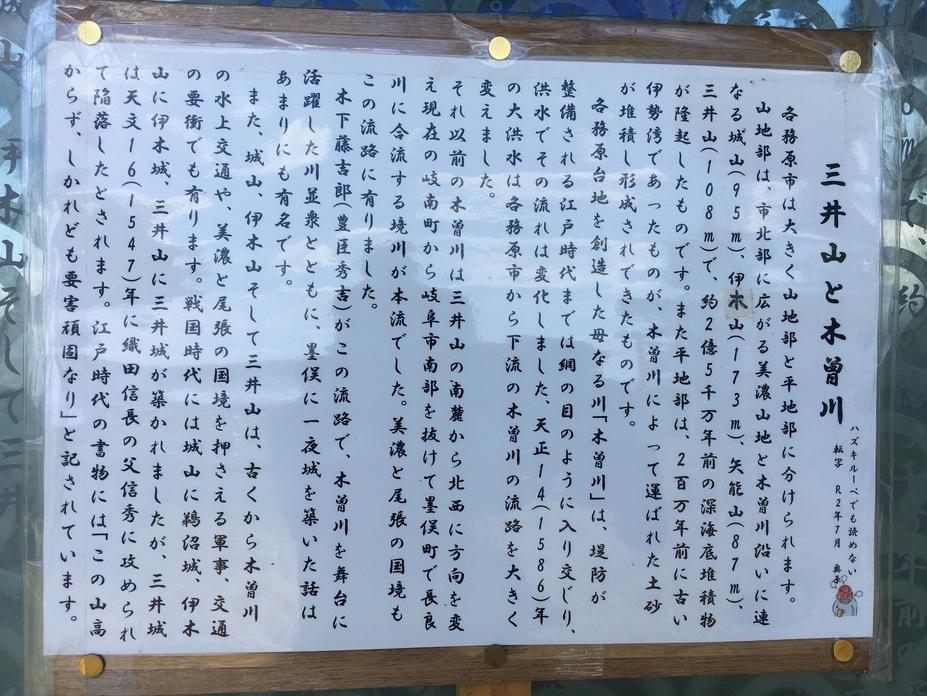 三井山と木曽川
ハズキルーペでも読めない
転写 R2年7月
各務原市は大きく山地部と平地部に分けられます。
山地部は、市北部に広がる美濃山地と木曽川沿いに連
なる城山(95m)、伊木山(173m)、矢熊山(87m)、
三井山(108m)で、約2億5千万年前の深海底堆積物
が隆起したものです。また平地部は、2百万年前に古い
伊勢湾であったものが、木曽川によって運ばれた土砂
が堆積し形成されてできたものです。
各務原台地を創造した母なる川「木曽川」は、堤防が
整備される江戸時代までは網の目のように入り交じり、
洪水でその流れは変化しました、天正14(1586)年
の大洪水は各務原市から下流の木曽川の流路を大きく
変えました。
それ以前の木曽川は三井山の南麓から北西に方向を変
え現在の岐南町から岐阜市南部を抜けて墨俣町で長良
川に合流する境川が本流でした。美濃と尾張の国境も
この流路に有りました。
木下藤吉郎(豊臣秀吉)がこの流路で、木曽川を舞台に
活躍した川並衆とともに、墨俣に一夜城を築いた話は
あまりにも有名です。
また、城山、伊木山そして三井山は、古くから木曽川
の水上交通や、美濃と尾張の国境を押さえる軍事、交通
の要衝でも有ります。戦国時代には城山に鵜沼城、伊木
山に伊木城、三井山に三井城が築かれましたが、三井城
は天文16(1547)年に織田信長の父信秀に攻められ
て陥落したとされます。江戸時代の書物には「この山高
からず、しかれども要害頑固なり」と記されています。